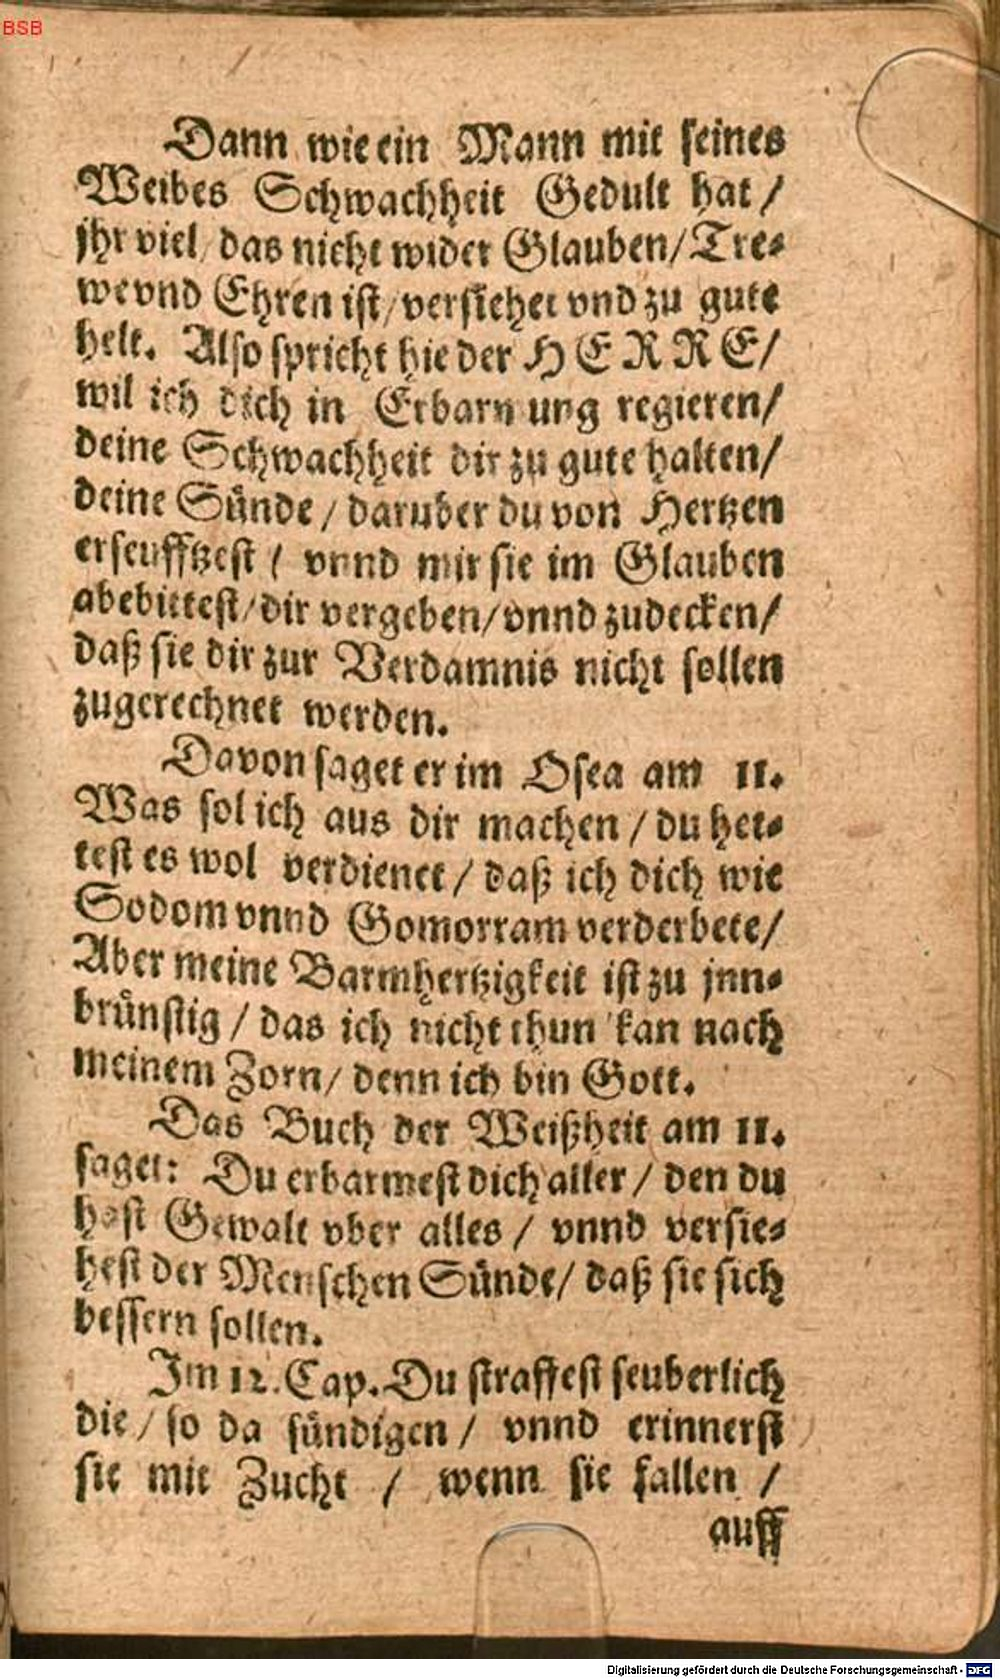 BSB
Dann wie ein Mann mit seines
Weibes Schwachheit Gedult hat /
jhr viel / das nicht wider Glauben / Tre⸗
we vnd Ehren ist / versiehet vnd zu gute
helt. Also spricht hie der HERRE /
wil ich dich in Erbarmung regieren /
deine Schwachheit dir zu gute halten /
deine Sünde / daruber du von Hertzen
erseufftzest / vnnd mir sie im Glauben
abebittest / dir vergeben / vnnd zudecken /
daß sie dir zur Verdamnis nicht sollen
zugerechnet werden.
Davon saget er im Osea am 11.
Was sol ich aus dir machen / du het⸗
test es wol verdienet / daß ich dich wie
Sodom vnnd Gomorram verderbete /
Aber meine Barmhertzigkeit ist zu jnn⸗
brünstig / das ich nicht thun kan nach
meinem Zorn / denn ich bin Gott.
Das Buch der Weißheit am 11.
saget: Du erbarmest dich aller / den du
hast Gewalt vber alles / vnnd versie⸗
hest der Menschen Sünde / daß sie sich
bessern sollen.
Im 12. Cap. Du straffest seuberlich
die / so da sündigen / vnnd erinnerst
sie mit Zucht / wenn sie fallen /
auff
Digitalisierung gefördert durch die Deutsche Forschungsgemeinschaft - DFG